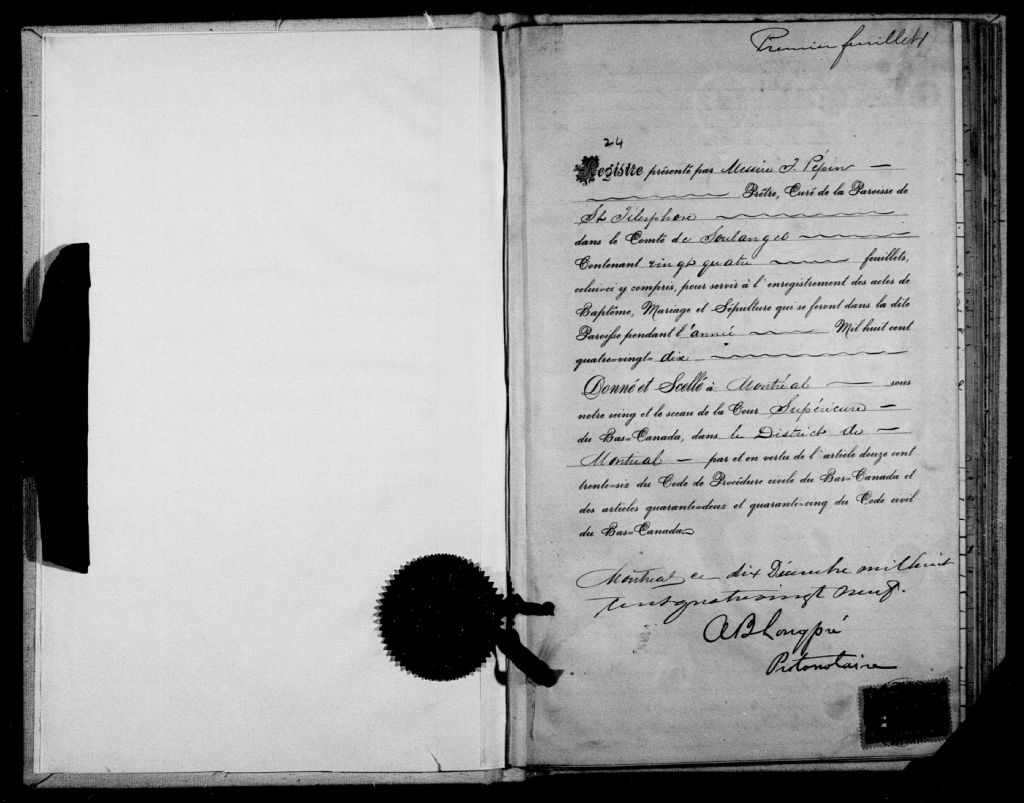 Premier feuillet
24
Registre présenté par Messire J. Pépin
Prêtre, Curé de la Paroisse de
St Télesphore
dans le Comté de Soulanges
Contenant vingt quatre feuillets,
celui-ci y compris, pour servir à l'enregistrement des actes de
Baptême, Mariage et Sépulture qui se feront dans la dite
Paroisse pendant l'année Mil huit cent
quatre-vingt-dix
Donné et Scellé à Montréal sous
notre seing et le sceau de la Cour Supérieure
du Bas-Canada, dans le District de
Montréal par et en vertu de l'article douze cent
trente-six du Code de Procédure civile du Bas-Canada et
des articles quarante-deux et quarante-cinq du Code civil
du Bas-Canada
Montréal ce dix Décembre mil huit
cent quatre vingt neuf.
AB Longpré
Protonotaire